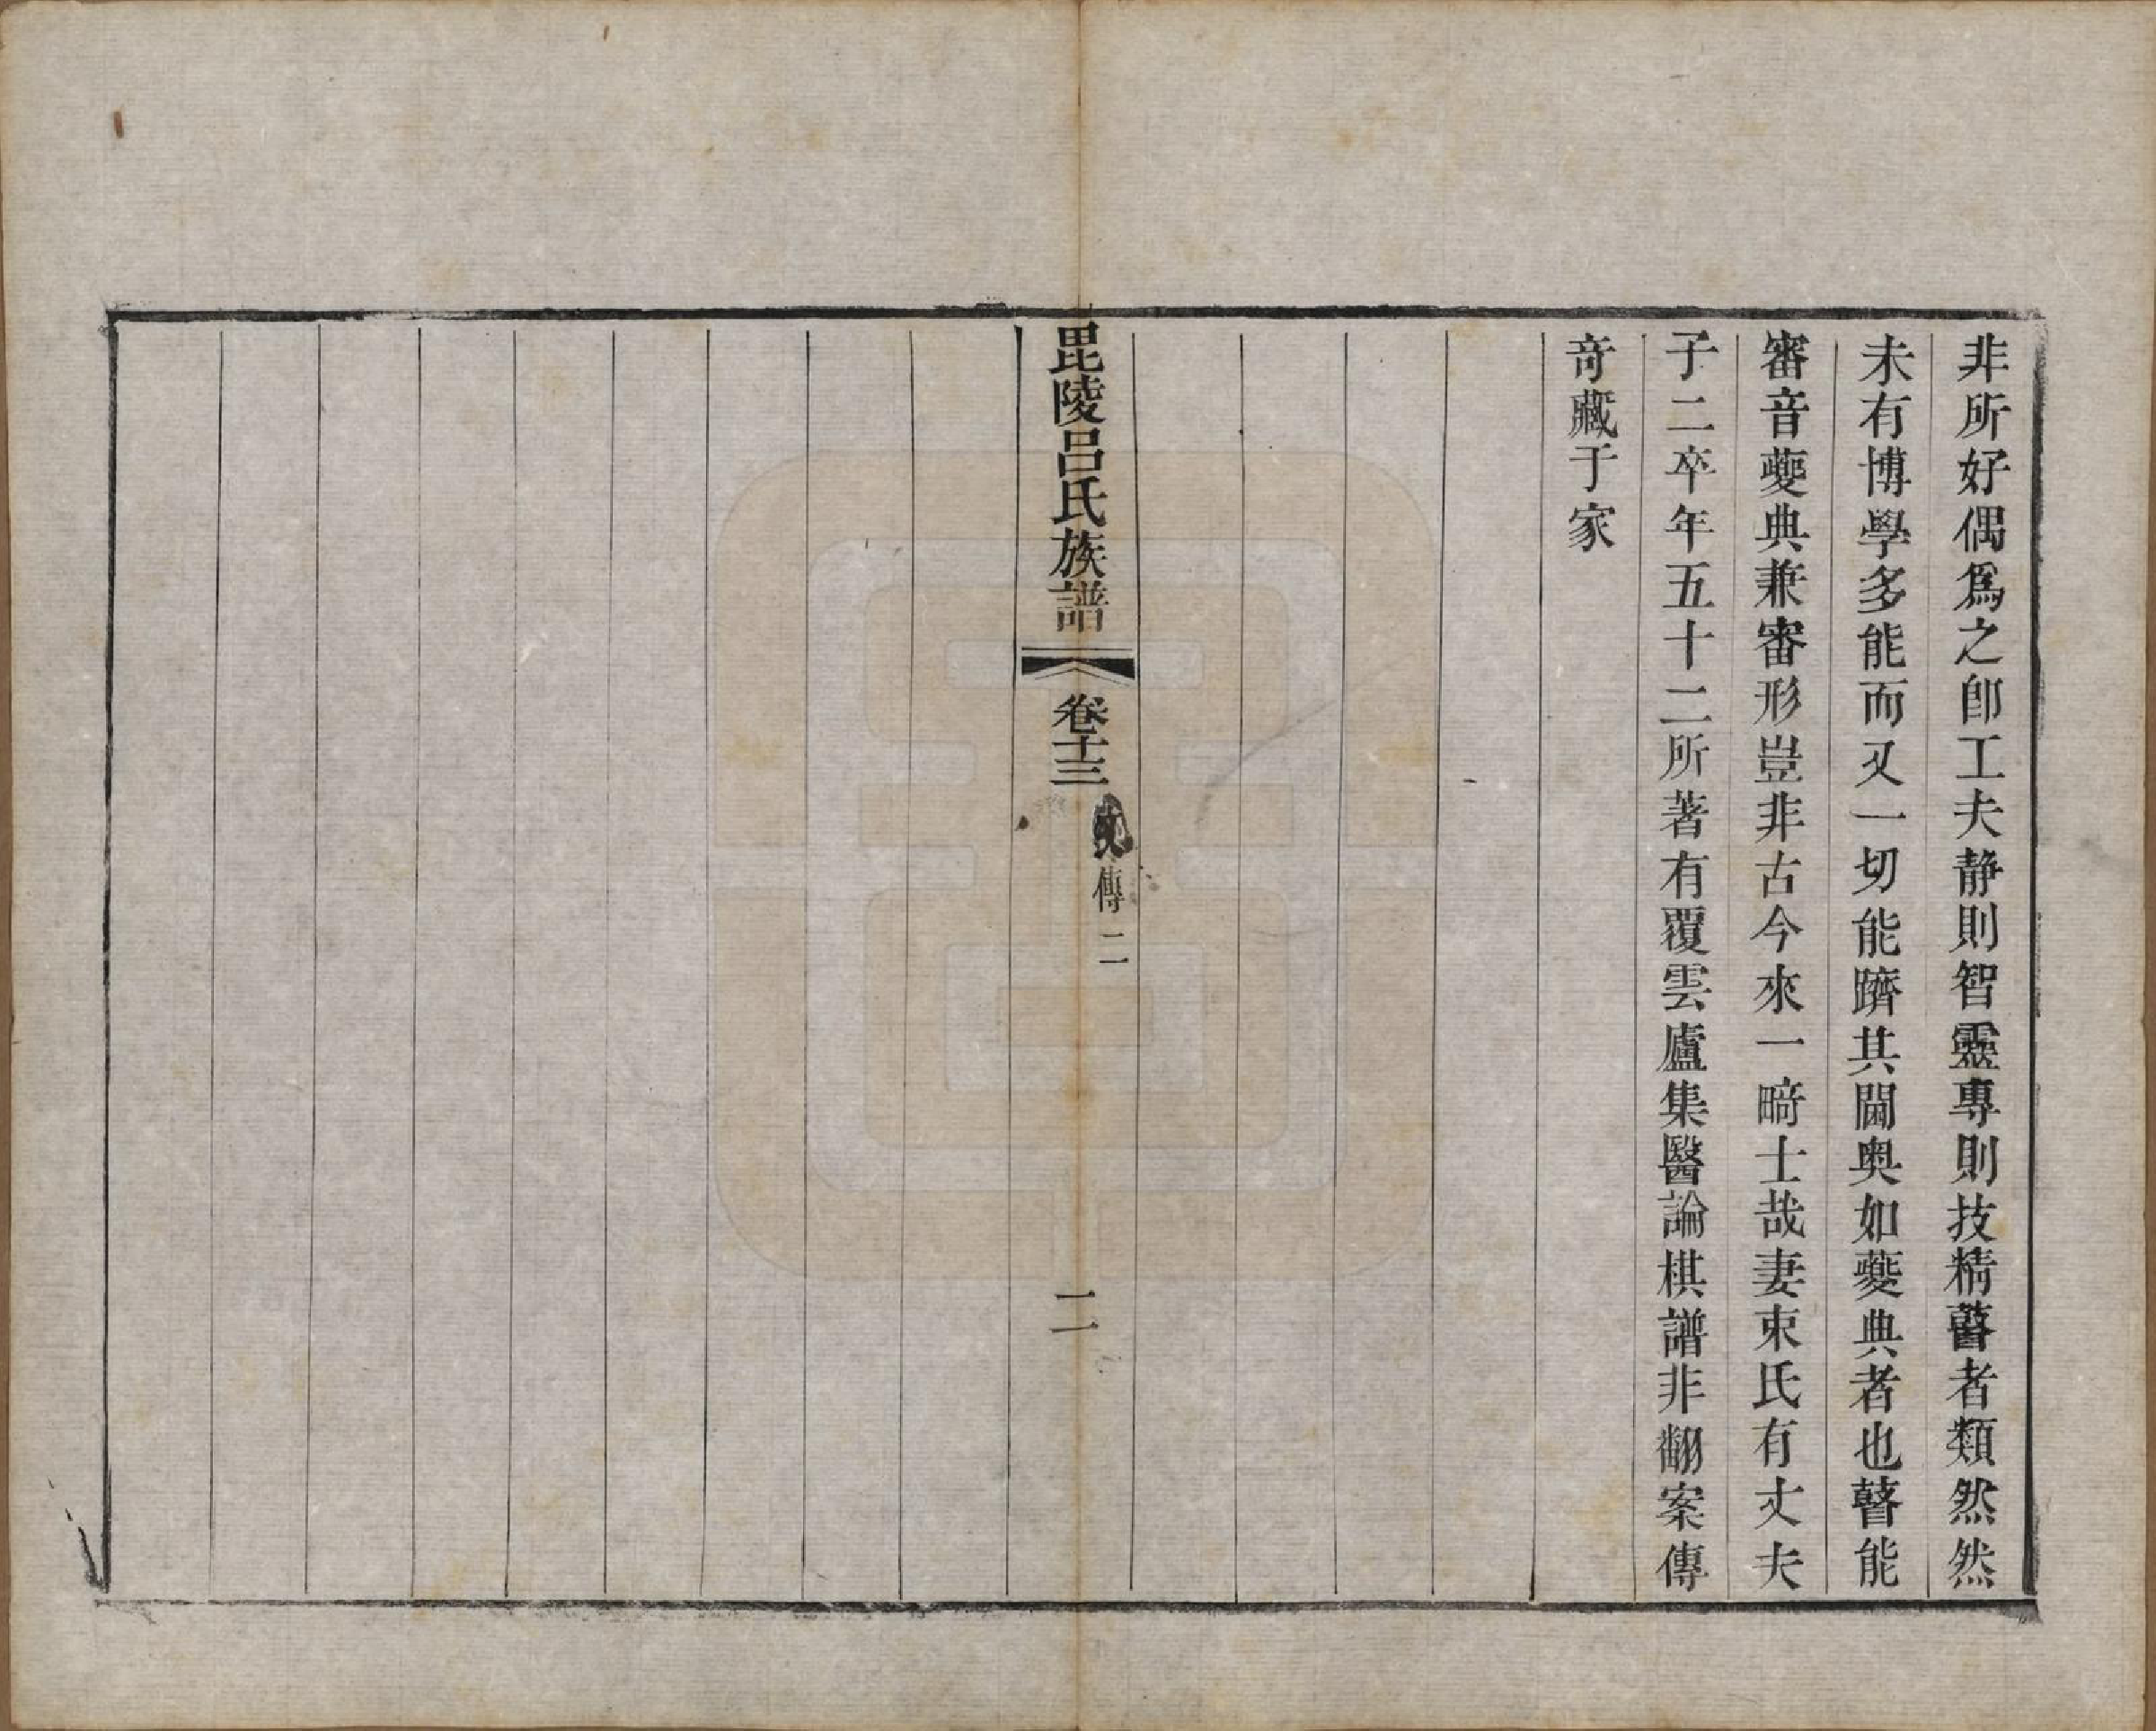 非所好偶爲之卽工夫静則智靈專則技精瞽者類然然
未有博學多能而又一切能躋其閫奥如夔典者也瞽能
審音夔典兼審形豈非古今來一畸士哉妻束氏有丈夫
子二卒年五十二所著有覆雲廬集醫論棋譜非翻案傳
奇藏于家
毘陵呂氏族譜
卷十三
傳二
二